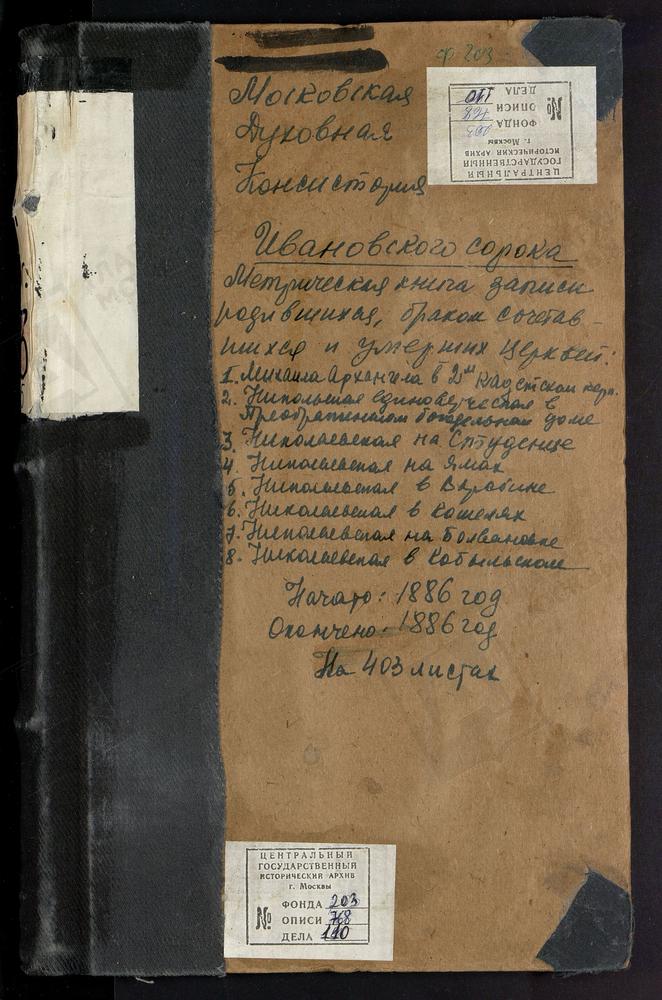 ф 203
Московская
Духовная
Консистория
ЦЕНТРАЛЬНЫЙ
ГОСУДАРСТВЕННЫЙ
ИСТОРИЧЕСКИЙ АРХИВ
г. Москвы
№
ФОНДА 203
ОПИСИ
ДЕЛА 110
Ивановского сорока
Метрическая книга записи
родившихся, браком сочетав-
шихся и умерших церквей:
1. Михаила Архангела в 2м кадетском корп.
2. Никольская единоверческая в
Преображенском богадельном доме
3. Николаевская на Студенце
4. Николаевская на Ямах
5. Николаевская в Воробине
6. Николаевская в Кошелях
7. Николаевская на Болвановке
8. Николаевская в Кобыльском
Начато: 1886 год
Окончено: 1886 год
На 403 листах
ЦЕНТРАЛЬНЫЙ
ГОСУДАРСТВЕННЫЙ
ИСТОРИЧЕСКИЙ АРХИВ
г. Москвы
№
ФОНДА 203
ОПИСИ 768
ДЕЛА 110